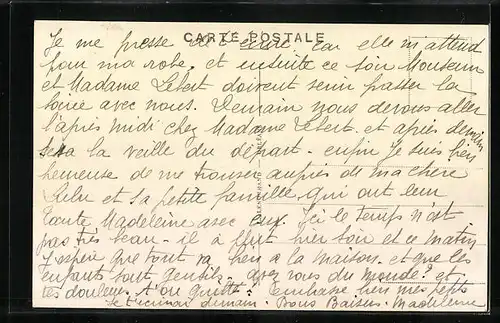 CARTE POSTALE
Je me presse de t'écrire car elle m'attend
pour ma robe. et ensuite ce soir Monsieur
et Madame Lebert doivent venir passer la
soirée avec nous. Demain nous devons aller
l'après midi chez Madame Lebert. et après demain
sera la veille du départ - enfin je suis bien
heureuse de me trouver auprès de ma chère
Lulu et sa petite famille qui ont leur
Tante Madeleine avec eux. Ici le temps n'est
pas très beau - il a plut hier soir et ce matin
J'espère que tout va bien à la maison. et que les
enfants sont gentils - avez vous du monde? et
tes douleurs t'ont quittée? Embrasse bien mes
Je t'écrirai demain. Bons Baisers. Madeleine